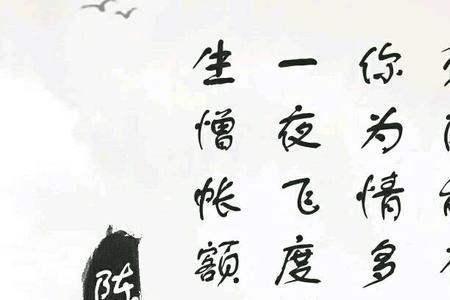 你为情多
一夜飞度
生憎帐额
陈